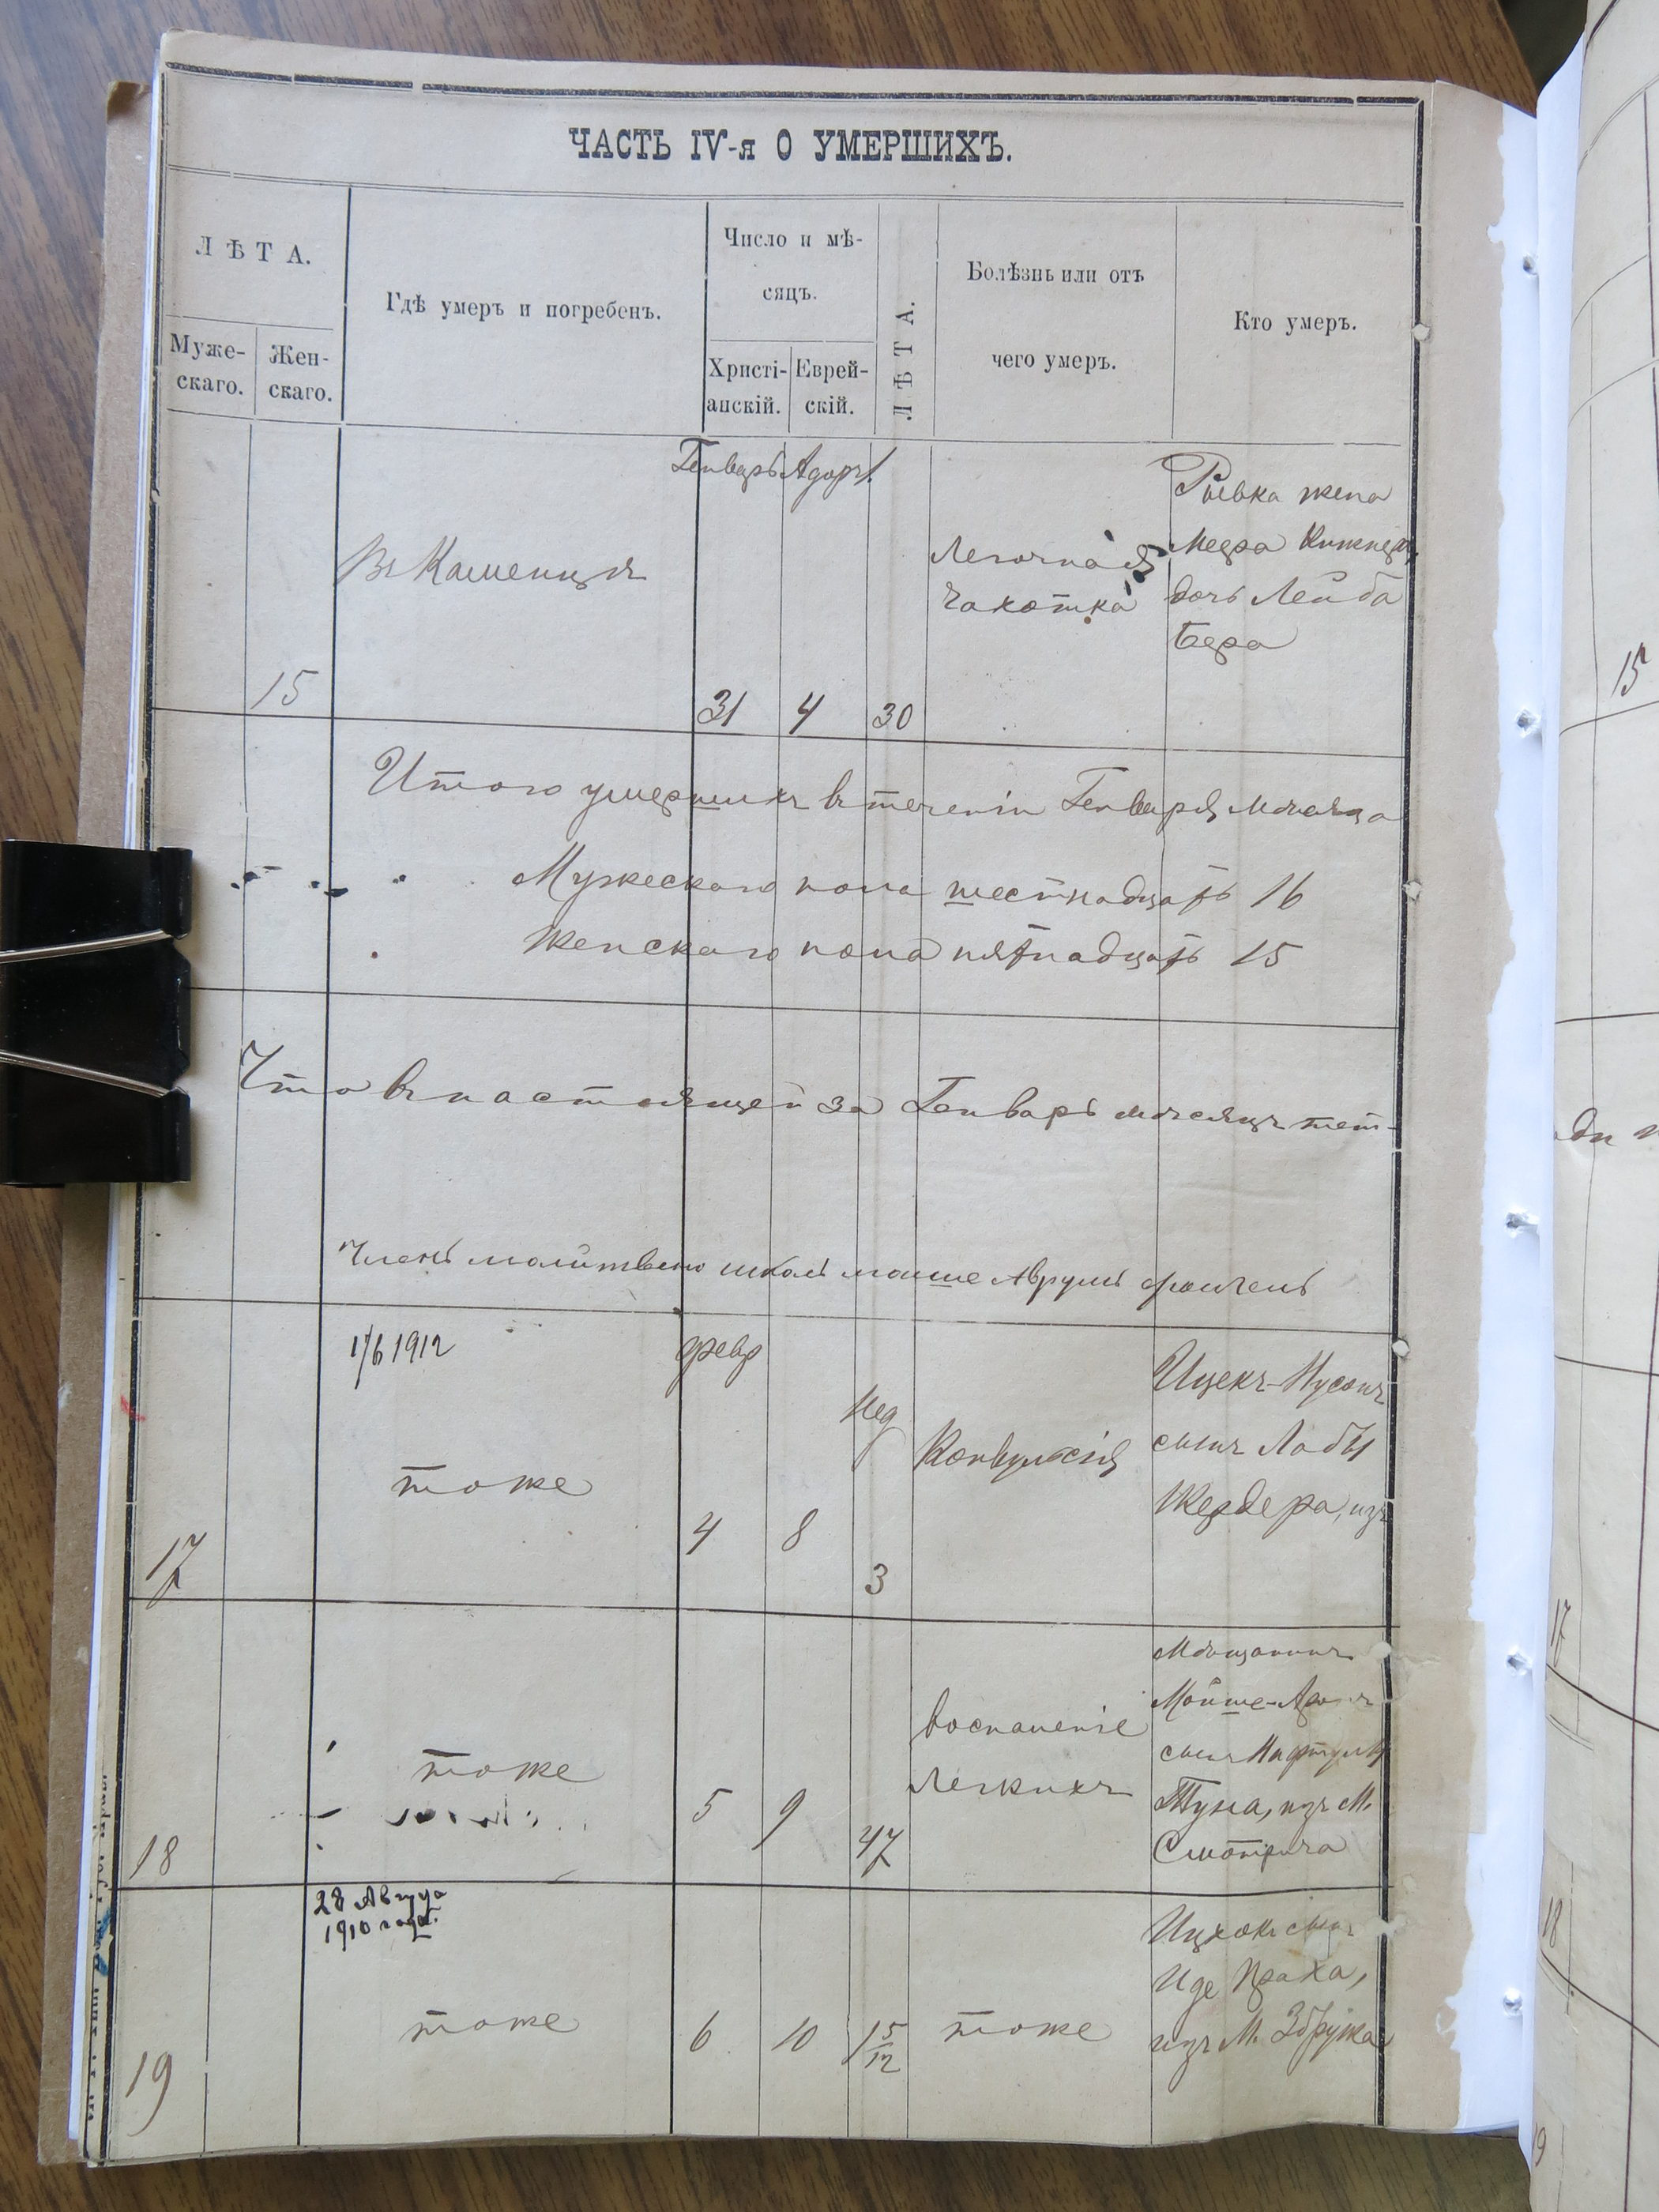 ЧАСТЬ IV-я О УМЕРШИХЪ.
ЛѢТА.
Муже-
скаго.
Жен-
скаго.
Гдѣ умеръ и погребенъ.
Число и мѣ-
сяцъ.
Христі-
анскій.
Еврей-
скій.
ЛѢТА.
Болѣзнь или отъ
чего умеръ.
Кто умеръ.
Генварь Адаръ 1.
15
Въ Каменцѣ
31
4
30
Легочная
чахотка
Рывка жена
Меера
дочь Лейба
Бера
Итого умершихъ въ теченіи Генваря мѣсяца
Мужескаго пола шестнадцать 16
Женскаго пола пятнадцать 15
Что въ настоящей за Генварь мѣсяцъ тет-
Членъ молитвено школы Мошше Аврумъ
17/6 1912
февр
17
тоже
4
8
Нед
3
Конвульсія
Ицекъ-Нусонъ
сынъ Лабы
Жердера, изъ
18
тоже
5
9
47
воспаленіе
легкихъ
Мѣщанинъ
Мойше-
сынъ Нафтулы
изъ М.
Смотрича
28 Авгус
1910 года.
19
тоже
6
10
1 5/12
тоже
Ицхокъ сынъ
Иде
изъ М. Збружа
15
17
18
19